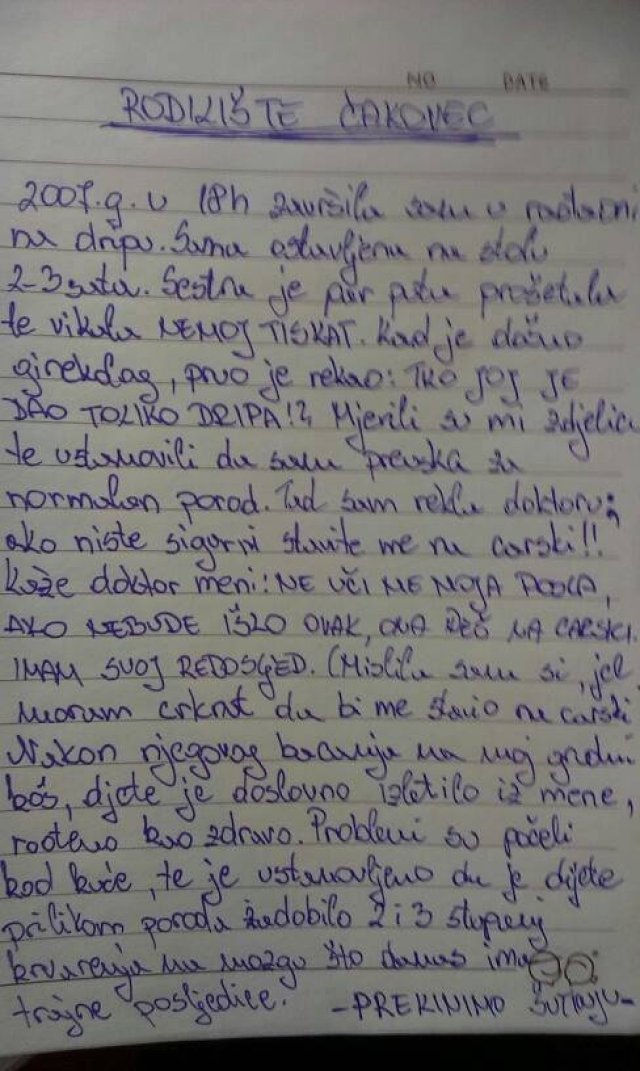 NO DATE
RODILIŠTE ČAKOVEC
2007.g. u 18h završila sam u rađaoni
na dripu. Sama ostavljena na stolu
2-3 sata. Sestra je par puta prošetala
te vikala NEMOJ TISKAT. Kad je došao
ginekolog, prvo je rekao: TKO JOJ JE
DAO TOLIKO DRIPA!? Mjerili su mi zdjelicu
te ustanovili da sam preuska za
normalan porod. Tad sam rekla doktoru:
ako niste sigurni stavite me na carski!!
Kaže doktor meni: NE UČI ME MOJA
AKO NEBUDE IŠLO OVAK, ONA NA CARSKI.
IMAM SVOJ REDOSLJED. (Mislila sam si, jel
moram crknut da bi me stavio na carski
Nakon njegovog bacanja na moj grudni
koš, djete je doslovno izletilo iz mene,
rođeno kao zdravo. Problemi su počeli
kod kuće, te je ustanovljeno da je dijete
prilikom poroda zadobilo 2 i 3 stupanj
krvarenja na mozgu što danas ima
trajne posljedice. -PREKINIMO ŠUTNJU-